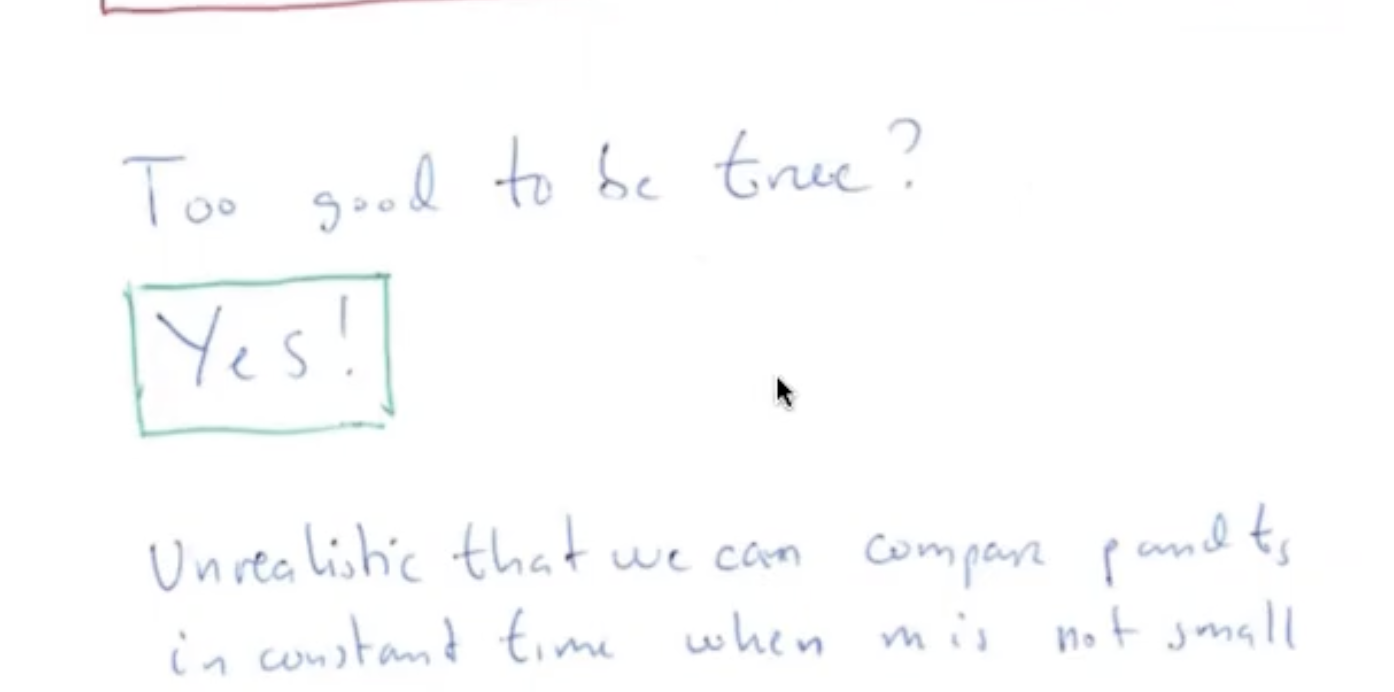 Too good to be true?
Yes!
Unrealistic that we can compare p and ts
in constant time when m is not small